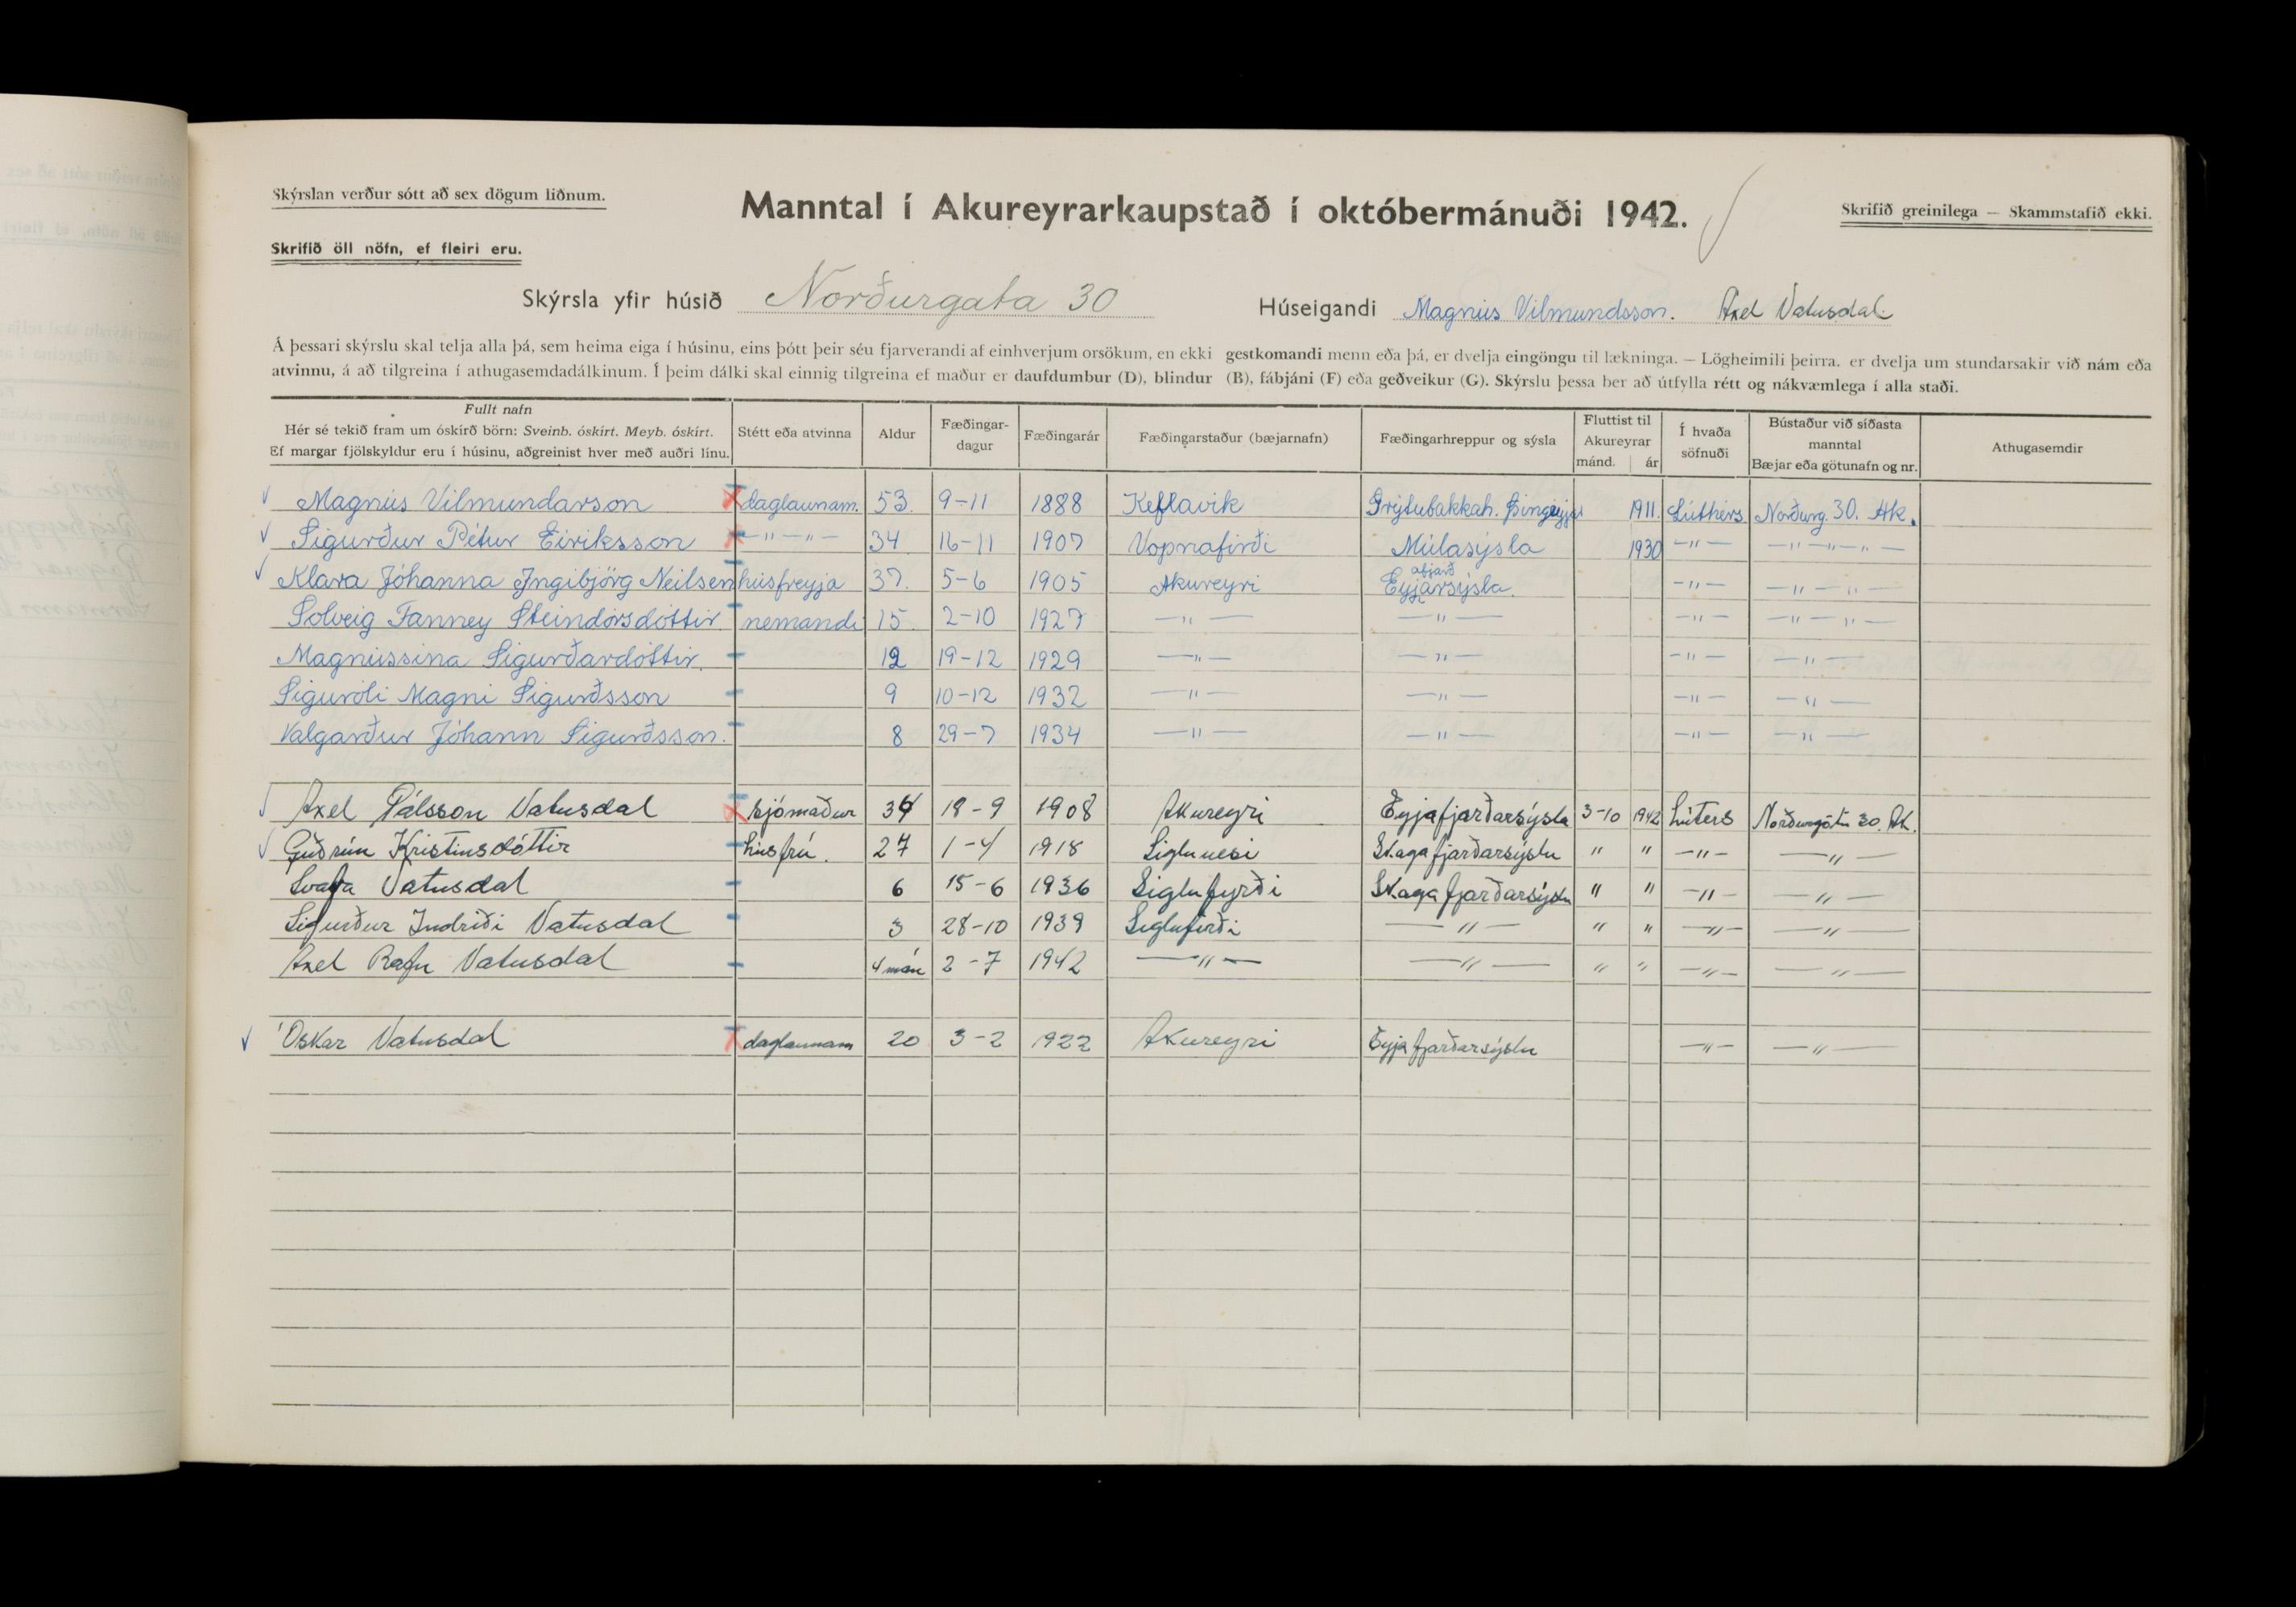 Skýrslan verður sótt að sex dögum liðnum.
Manntal í Akureyrarkaupstað í októbermánuði 1942.
Skrifið greinilega — Skammstafið ekki.
Skrifið öll nöfn, ef fleiri eru.
Skýrsla yfir húsið Norðurgata 30 Húseigandi Magnús Vilmundsson. Axel Vatnsdal.
Á þessari skýrslu skal telja alla þá, sem heima eiga í húsinu, eins þótt þeir séu fjarverandi af einhverjum orsökum, en ekki gestkomandi menn eða þá, er dvelja eingöngu til lækninga. — Lögheimili þeirra, er dvelja um stundarsakir við nám eða
atvinnu, á að tilgreina í athugasemdadálkinum. Í þeim dálki skal einnig tilgreina ef maður er daufdumbur (D), blindur (B), fábjáni (F) eða geðveikur (G). Skýrslu þessa ber að útfylla rétt og nákvæmlega í alla staði.
Fullt nafn
Hér sé tekið fram um óskírð börn: Sveinb. óskírt. Meyb. óskírt.
Ef margar fjölskyldur eru í húsinu, aðgreinist hver með auðri línu.
Stétt eða atvinna
Aldur
Fæðingar-
dagur
Fæðingarár
Fæðingarstaður (bæjarnafn)
Fæðingarhreppur og sýsla
Fluttist til
Akureyrar
mánd. ár
Í hvaða
söfnuði
Bústaður við síðasta
manntal
Bæjar eða götunafn og nr.
Athugasemdir
Magnús Vilmundarson daglaunam. 53. 9-11 1888 Keflavík Grýtubakkah. Þingeyjar 1911. Lúthers Norðurg. 30. Ak.
Sigurður Pétur Eiríksson —"—"— 34 16-11 1907 Vopnafirði Múlasýsla 1930 —"— —"—"—"—
Klara Jóhanna Ingibjörg Neilsen húsfreyja 37. 5-6 1905 Akureyri Eyjafjarðarsýsla. —"— —"—"—
Solveig Fanney Steindórsdóttir nemandi 15 2-10 1927 —"— —"— —"— —"—"—
Magnússína Sigurðardóttir. 12 19-12 1929 —"— —"— —"— —"—
Siguróli Magni Sigurðsson 9 10-12 1932 —"— —"— —"— —"—
Valgarður Jóhann Sigurðsson. 8 29-7 1934 —"— —"— —"— —"—
Axel Pálsson Vatnsdal sjómaður 34 18-9 1908 Akureyri Eyjafjarðarsýsla 3-10 1942 Lúters Norðurgötu 30. Ak.
Guðrún Kristinsdóttir húsfrú. 27 1-4 1918 Siglunesi Skagafjarðarsýslu " " —"— —"—
Svafa Vatnsdal 6 15-6 1936 Siglufyrði Skagafjarðarsýslu " " —"— —"—
Sigurður Indriði Vatnsdal 3 28-10 1939 Siglufirði —"— " " —"— —"—
Axel Rafn Vatnsdal 4 mán 2-7 1942 —"— —"— " " —"— —"—
Óskar Vatnsdal daglaunam 20 3-2 1922 Akureyri Eyjafjarðarsýslu —"— —"—